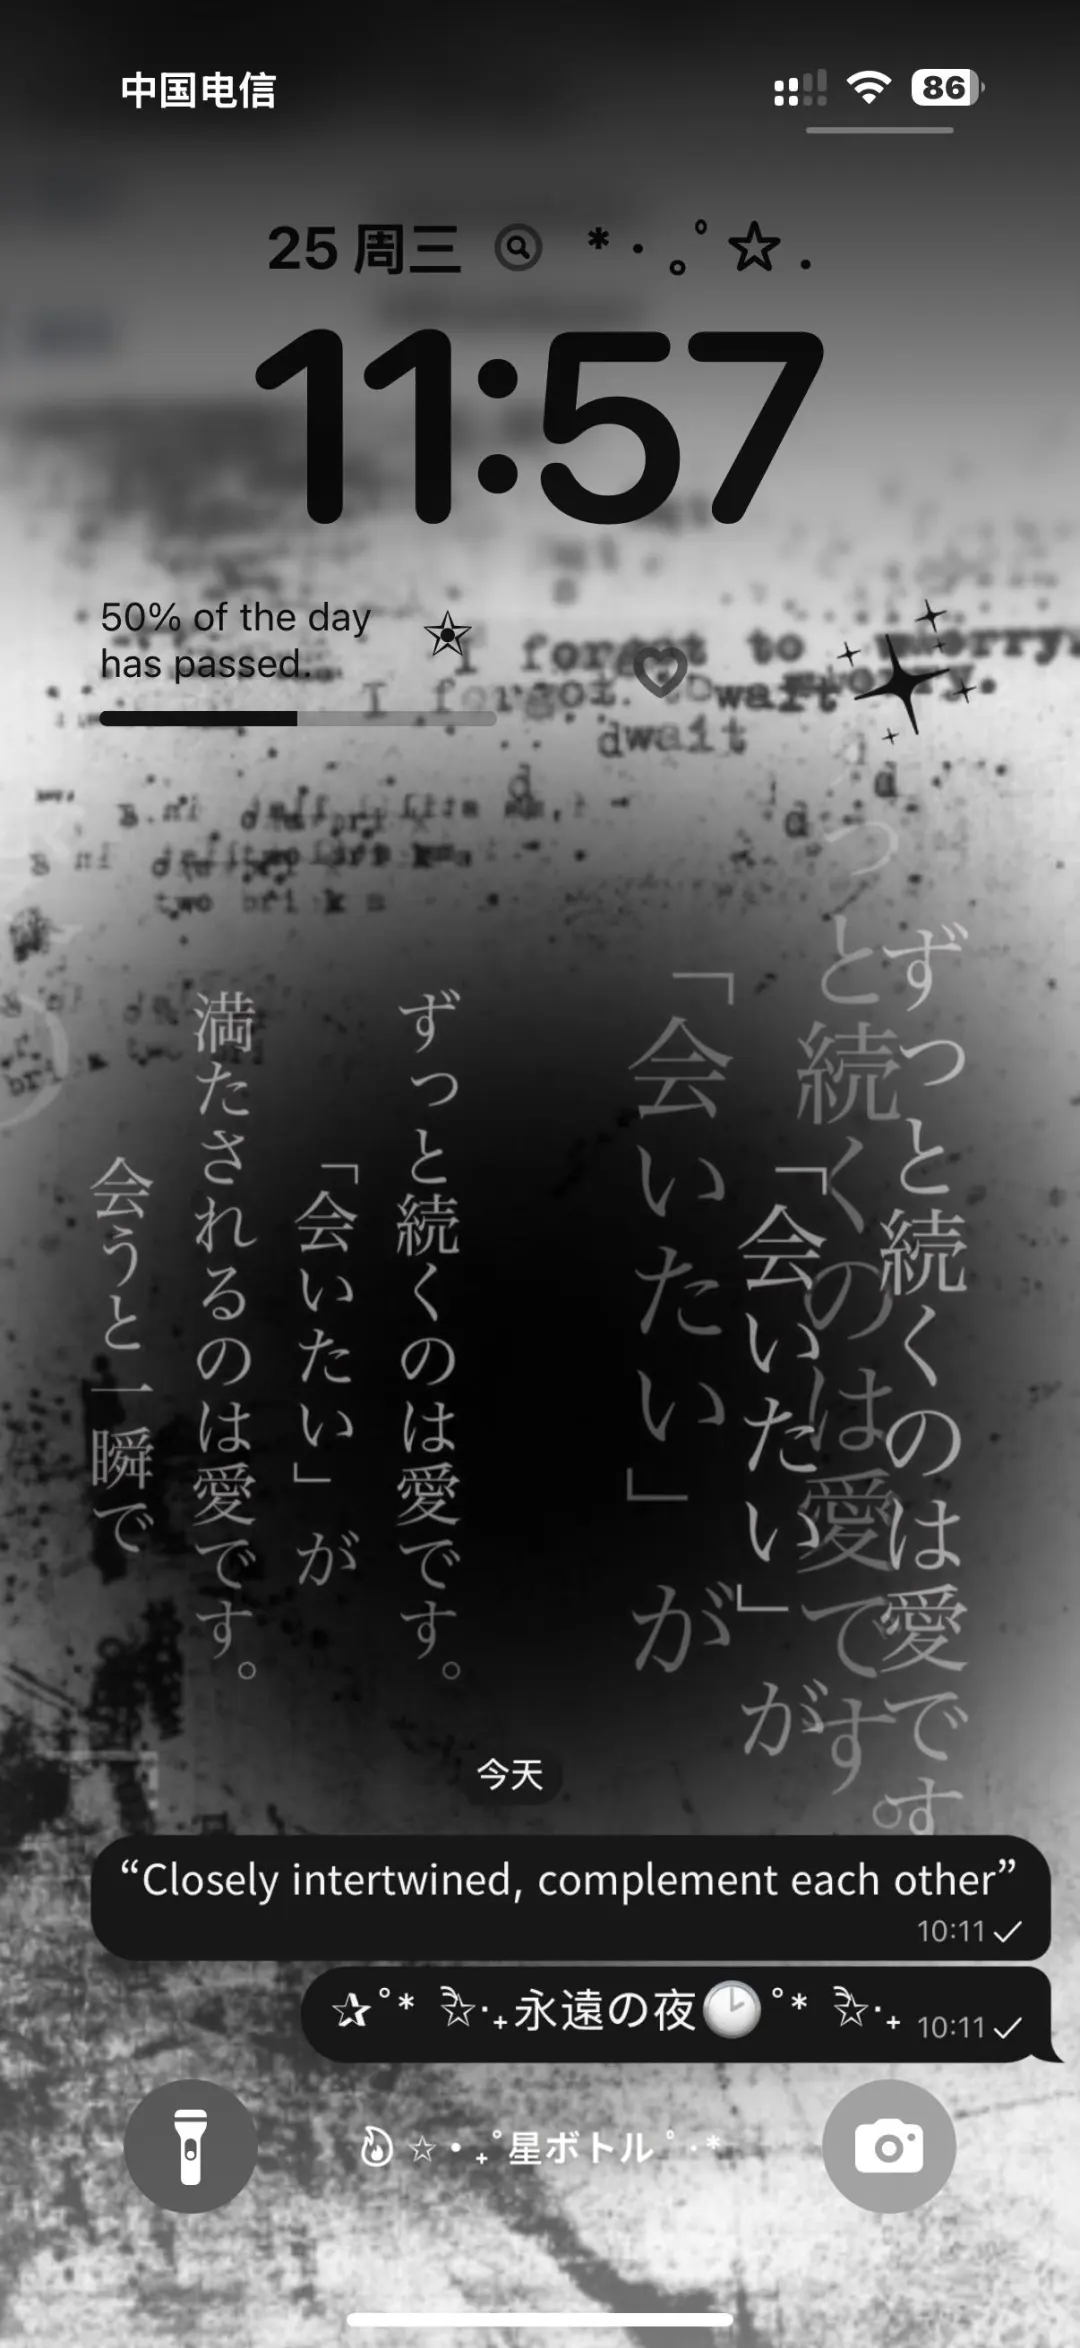 中国电信
86
25 周三 * · 。˚ ☆ .
11:57
50% of the day
has passed.
I forgot to worry.
I forgot to worry.
dwait
dwait
d
d
d
two bri k s
ずっと続くのは愛です。
ずっと続くのは愛です。
「会いたい」が
「会いたい」が
ずっと続くのは愛です。
「会いたい」が
満たされるのは愛です。
会うと一瞬で
今天
“Closely intertwined, complement each other”
10:11 ✓
✰˚* ✰·₊永遠の夜🕑˚* ✰·₊ 10:11 ✓
☆•₊˚星ボトル˚·*